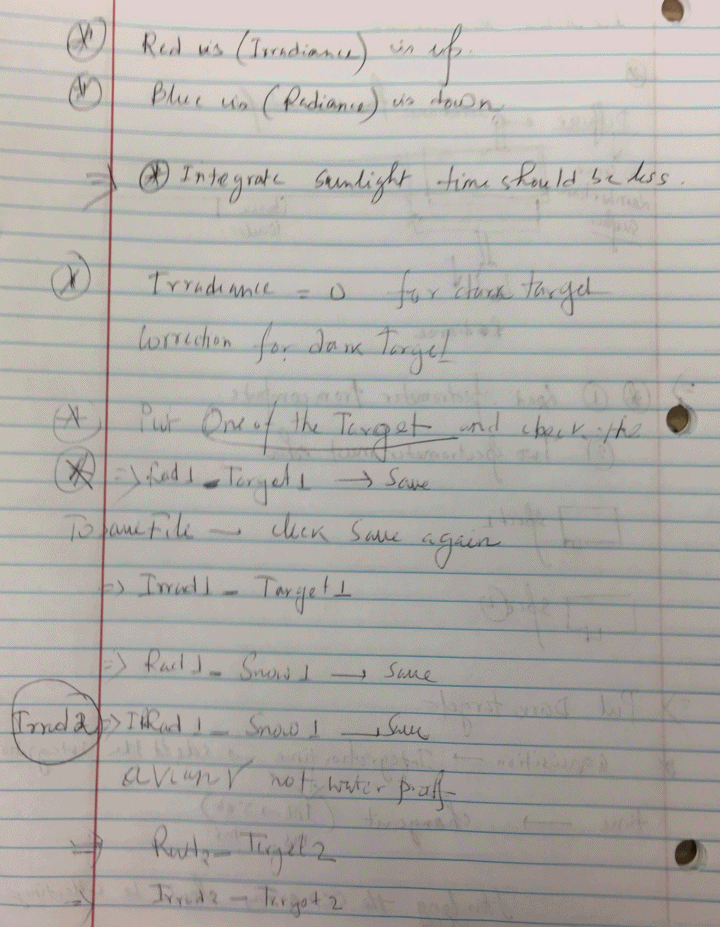 Red is (Irradiance) is up.
Blue is (Radiance) is down
=> Integrate sunlight time should be less.
Irradiance = 0 for dark target
Correction for dark Target
Put One of the Target and check the
=> Rad1_Target1 → Save
To save File → click Save again
=> Irrad1_Target1
=> Rad1_Snow1 → save
Irrad2 => IRad1_Snow1 → Save
not water proff
=> Rad2_Target2
=> Irrad2_Target2